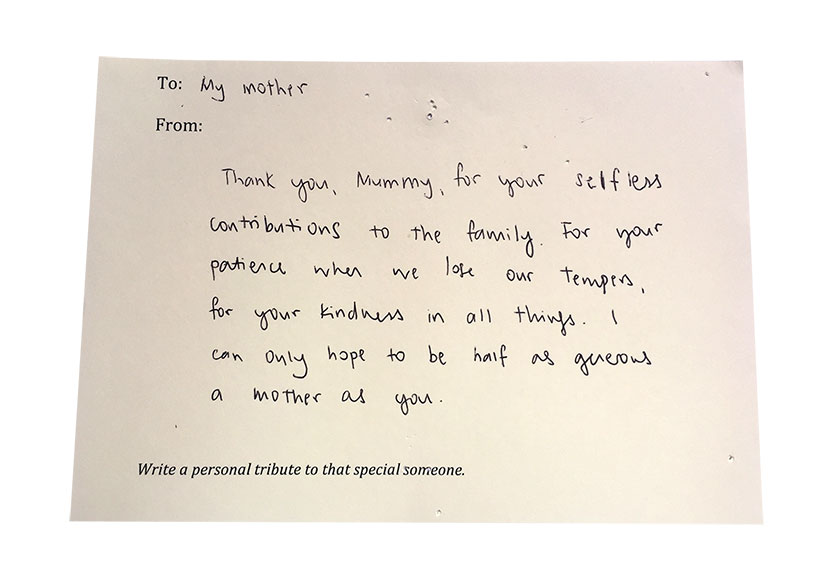 To: My mother
From:
Thank you, Mummy, for your selfless
contributions to the family. For your
patience when we lose our tempers,
for your kindness in all things. I
can only hope to be half as generous
a mother as you.
Write a personal tribute to that special someone.